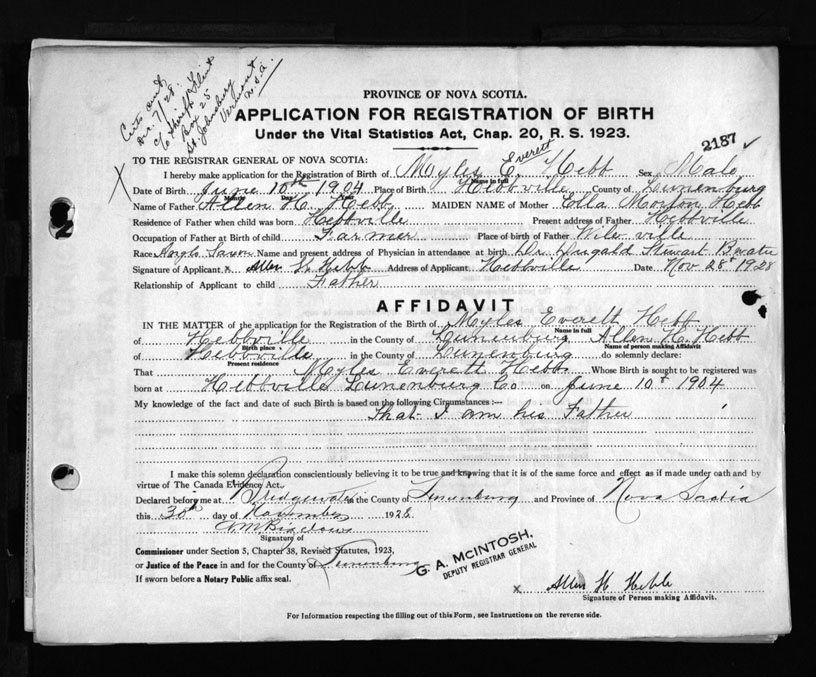 Certs sent
Dec. 7/28.
c/o Sheriff
Box 25
St Johnsbury
Vermont
U.S.A.
PROVINCE OF NOVA SCOTIA.
APPLICATION FOR REGISTRATION OF BIRTH
Under the Vital Statistics Act, Chap. 20, R. S. 1923.
2187 ✓
TO THE REGISTRAR GENERAL OF NOVA SCOTIA:
Everett
X I hereby make application for the Registration of Birth of Myles E. Hebb Sex Male
Name in full
Date of Birth June 10th 1904 Place of Birth Hebbville County of Lunenburg
Month Day Year
Name of Father Allen H. Hebb MAIDEN NAME of Mother Ella Hebb
Residence of Father when child was born Hebbville Present address of Father Hebbville
Occupation of Father at Birth of child Farmer Place of birth of Father Wileville
Race Anglo Saxon Name and present address of Physician in attendance at birth Dr Dugald Stewart B.water
Signature of Applicant X Allen H Hebb Address of Applicant Hebbville Date Nov 28t 1928
Relationship of Applicant to child Father
AFFIDAVIT
IN THE MATTER of the application for the Registration of the Birth of Myles Everett Hebb
Name in full
of Hebbville in the County of Lunenburg Allen H. Hebb
Birth place Name of person making Affidavit
of Hebbville in the County of Lunenburg do solemnly declare:
Present residence
That Myles Everett Hebb Whose Birth is sought to be registered was
born at Hebbville Lunenburg Co on June 10t 1904
My knowledge of the fact and date of such Birth is based on the following Circumstances :—
That I am his Father
I make this solemn declaration conscientiously believing it to be true and knowing that it is of the same force and effect as if made under oath and by
virtue of The Canada Evidence Act.
Declared before me at Bridgewater in the County of Lunenburg and Province of Nova Scotia
this 30th day of November 1928
Signature of
Commissioner under Section 5, Chapter 38, Revised Statutes, 1923,
or Justice of the Peace in and for the County of Lunenburg
If sworn before a Notary Public affix seal.
G. A. MCINTOSH,
DEPUTY REGISTRAR GENERAL
X Allen H Hebb
Signature of Person making Affidavit.
For Information respecting the filling out of this Form, see Instructions on the reverse side.